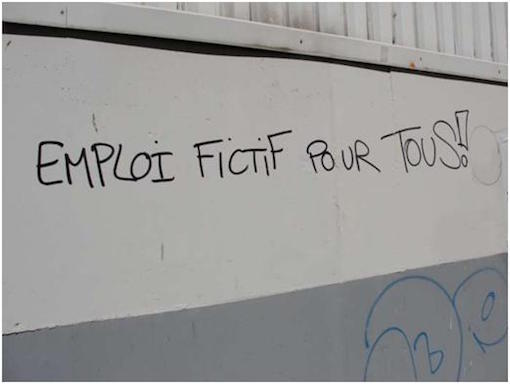 EMPLOI FICTIF POUR TOUS!